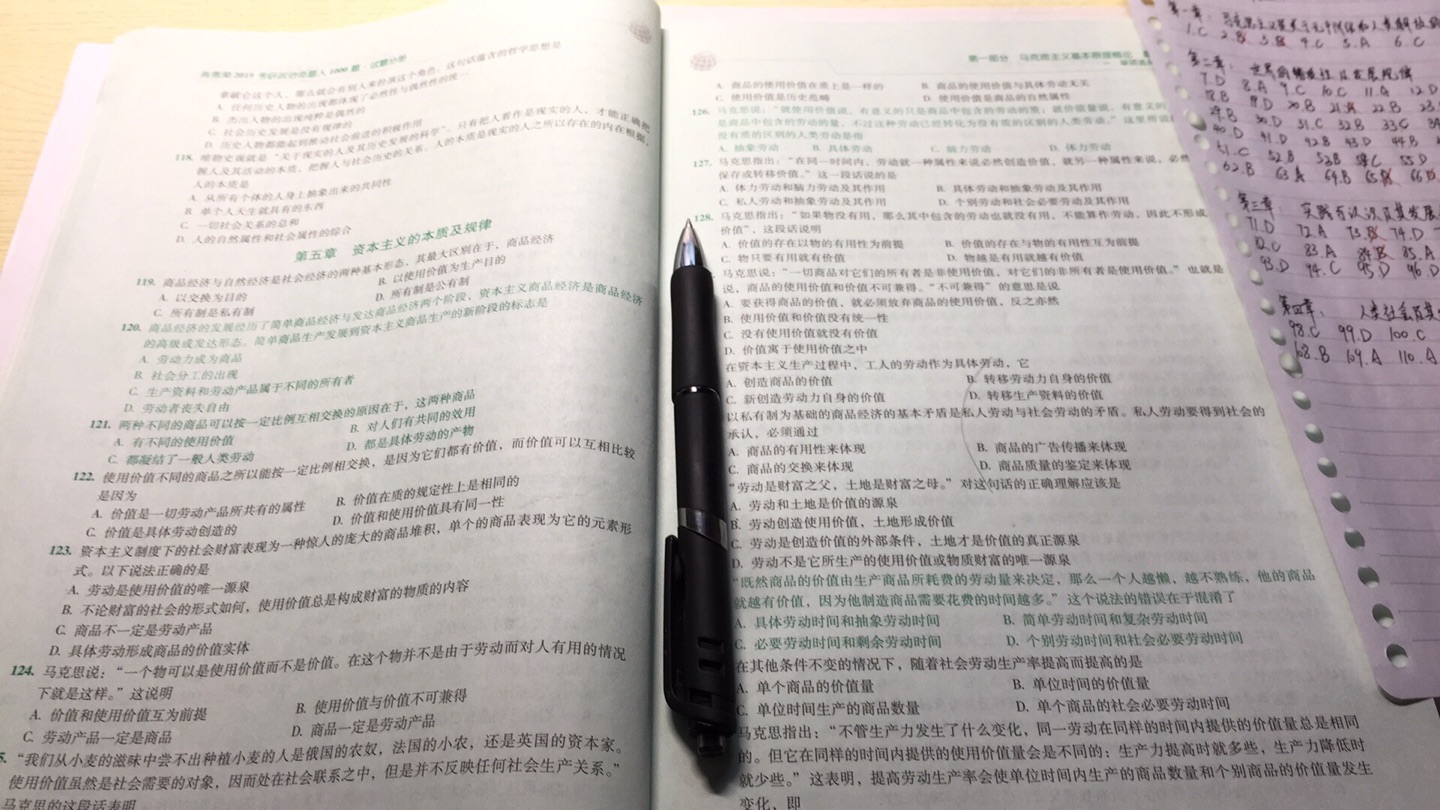 拿破仑这个人，那么就会有别人来扮演这个角色。这句话蕴含的哲学思想是
A. 任何历史人物的出现都体现了必然性与偶然性的统一
B. 杰出人物的出现纯粹是偶然的
C. 社会历史发展是没有规律的
D. 历史人物都能起到推动社会前进的积极作用
118. 唯物史观就是“关于现实的人及其历史发展的科学”。只有把人看作是现实的人，才能正确把
握人及其活动的本质、把握人与社会历史的关系。人的本质是现实的人之所以存在的内在根据，
人的本质是
A. 从所有个体的人身上抽象出来的共同性
B. 单个人天生就具有的东西
C. 一切社会关系的总和
D. 人的自然属性和社会属性的综合
第五章 资本主义的本质及规律
119. 商品经济与自然经济是社会经济的两种基本形态，其最大区别在于，商品经济
A. 以交换为目的 B. 以使用价值为生产目的
C. 所有制是私有制 D. 所有制是公有制
120. 商品经济的发展经历了简单商品经济与发达商品经济两个阶段，资本主义商品经济是商品经济
的高级或发达形态。简单商品生产发展到资本主义商品生产的新阶段的标志是
A. 劳动力成为商品
B. 社会分工的出现
C. 生产资料和劳动产品属于不同的所有者
D. 劳动者丧失自由
121. 两种不同的商品可以按一定比例互相交换的原因在于，这两种商品
A. 有不同的使用价值 B. 对人们有共同的效用
C. 都凝结了一般人类劳动 D. 都是具体劳动的产物
122. 使用价值不同的商品之所以能按一定比例相交换，是因为它们都有价值，而价值可以互相比较
是因为
A. 价值是一切劳动产品所共有的属性 B. 价值在质的规定性上是相同的
C. 价值是具体劳动创造的 D. 价值和使用价值具有同一性
123. 资本主义制度下的社会财富表现为一种惊人的庞大的商品堆积，单个的商品表现为它的元素形
式。以下说法正确的是
A. 劳动是使用价值的唯一源泉
B. 不论财富的社会的形式如何，使用价值总是构成财富的物质的内容
C. 商品不一定是劳动产品
D. 具体劳动形成商品的价值实体
124. 马克思说：“一个物可以是使用价值而不是价值。在这个物并不是由于劳动而对人有用的情况
下就是这样。”这说明
A. 价值和使用价值互为前提 B. 使用价值与价值不可兼得
C. 劳动产品一定是商品 D. 商品一定是劳动产品
5. “我们从小麦的滋味中尝不出种植小麦的人是俄国的农奴，法国的小农，还是英国的资本家。
使用价值虽然是社会需要的对象，因而处在社会联系之中，但是并不反映任何社会生产关系。”
马克思的这段话表明
第一部分 马克思主义基本原理概论
A. 商品的使用价值在质上是一样的 B. 商品的使用价值与具体劳动无关
C. 使用价值是历史范畴 D. 使用价值是商品的自然属性
126. 马克思说，“就使用价值说，有意义的只是商品中包含的劳动的质，就价值量说，有意义的
是商品中包含的劳动的量，不过这种劳动已经转化为没有质的区别的人类劳动。”这里所说
没有质的区别的人类劳动是指
A. 抽象劳动 B. 具体劳动 C. 脑力劳动 D. 体力劳动
127. 马克思指出：“在同一时间内，劳动就一种属性来说必然创造价值，就另一种属性来说，必然
保存或转移价值。”这一段话说的是
A. 体力劳动和脑力劳动及其作用 B. 具体劳动和抽象劳动及其作用
C. 私人劳动和抽象劳动及其作用 D. 个别劳动和社会必要劳动及其作用
128. 马克思指出：“如果物没有用，那么其中包含的劳动也就没有用，不能算作劳动，因此不形成
价值”，这段话说明
A. 价值的存在以物的有用性为前提 B. 价值的存在与物的有用性互为前提
C. 物只要有用就有价值 D. 物越是有用就越有价值
马克思说：“一切商品对它们的所有者是非使用价值，对它们的非所有者是使用价值。”也就是
说，商品的使用价值和价值不可兼得。“不可兼得”的意思是说
A. 要获得商品的价值，就必须放弃商品的使用价值，反之亦然
B. 使用价值和价值没有统一性
C. 没有使用价值就没有价值
D. 价值寓于使用价值之中
在资本主义生产过程中，工人的劳动作为具体劳动，它
A. 创造商品的价值 B. 转移劳动力自身的价值
C. 新创造劳动力自身的价值 D. 转移生产资料的价值
以私有制为基础的商品经济的基本矛盾是私人劳动与社会劳动的矛盾。私人劳动要得到社会的
承认，必须通过
A. 商品的有用性来体现 B. 商品的广告传播来体现
C. 商品的交换来体现 D. 商品质量的鉴定来体现
“劳动是财富之父，土地是财富之母。”对这句话的正确理解应该是
A. 劳动和土地是价值的源泉
B. 劳动创造使用价值，土地形成价值
C. 劳动是创造价值的外部条件，土地才是价值的真正源泉
D. 劳动不是它所生产的使用价值或物质财富的唯一源泉
“既然商品的价值由生产商品所耗费的劳动量来决定，那么一个人越懒，越不熟练，他的商品
就越有价值，因为他制造商品需要花费的时间越多。”这个说法的错误在于混淆了
A. 具体劳动时间和抽象劳动时间 B. 简单劳动时间和复杂劳动时间
C. 必要劳动时间和剩余劳动时间 D. 个别劳动时间和社会必要劳动时间
在其他条件不变的情况下，随着社会劳动生产率提高而提高的是
A. 单个商品的价值量 B. 单位时间的价值量
C. 单位时间生产的商品数量 D. 单个商品的社会必要劳动时间
马克思指出：“不管生产力发生了什么变化，同一劳动在同样的时间内提供的价值量总是相同
的。但它在同样的时间内提供的使用价值量会是不同的：生产力提高时就多些，生产力降低时
就少些。”这表明，提高劳动生产率会使单位时间内生产的商品数量和个别商品的价值量发生
变化，即
第一章：
1.C 4.C 5.A 6.C
第二章：世界的物质性及发展规律
7.D 8.A 9.C 10.C 11.A 12.D
第三章：实践与认识及其发展
71.D 72.A 74.D
82.C 83.A 85.A
93.D 94.C 95.D 96.D
第四章：人类社会及其
98.C 99.D 100.C
108.B 109.A 110.A